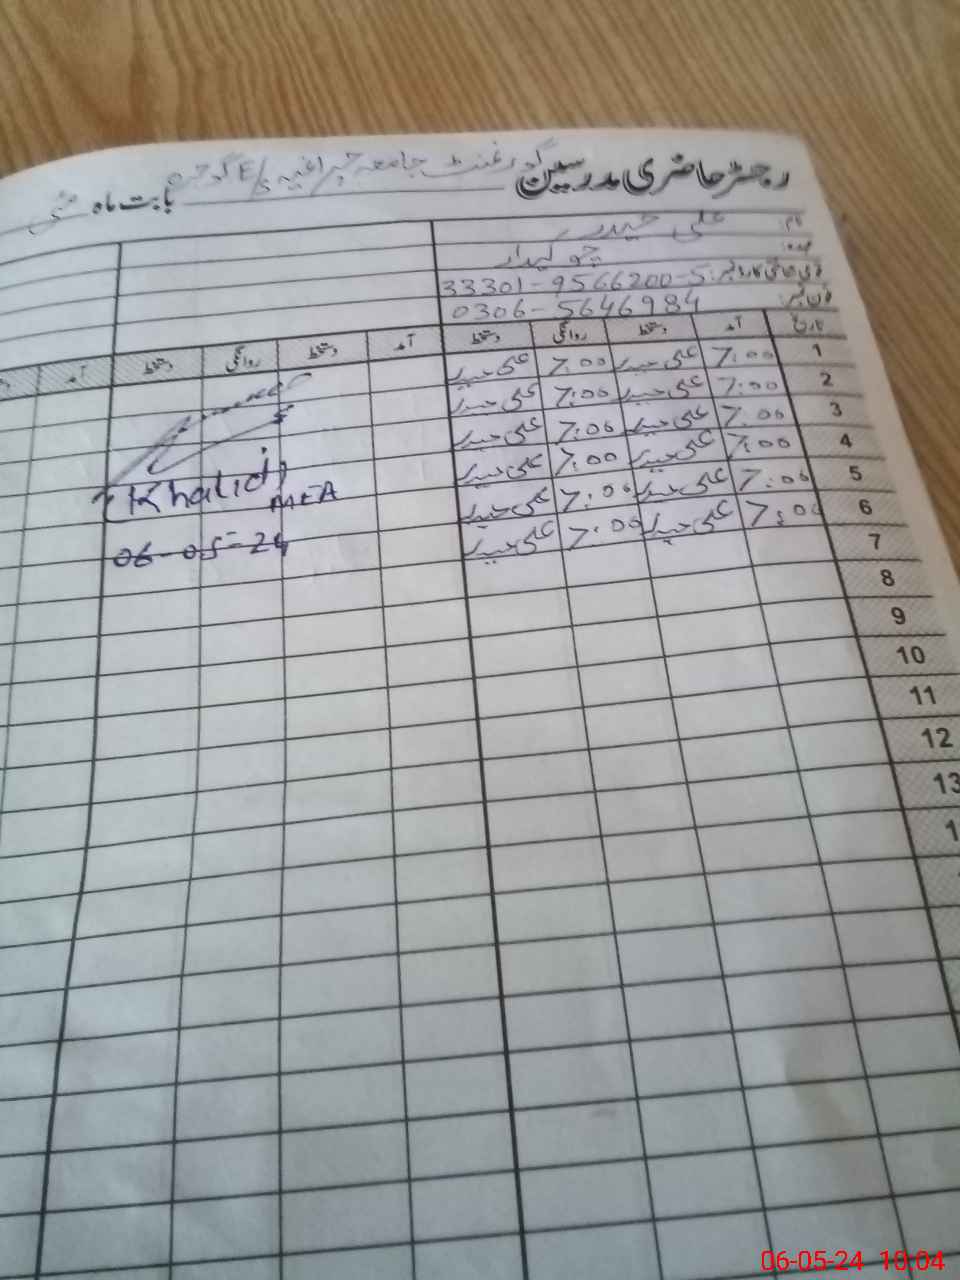 رجسٹر حاضری مدرسین گورنمنٹ جامعہ چراغیہ E/S گوجرہ بابت ماہ مئی
نام: علی حیدر
عہدہ: چوکیدار
قومی شناختی کارڈ نمبر: 33301-9566200-5
فون نمبر: 0306-5646984
تاریخ آمد دستخط روانگی دستخط آمد دستخط روانگی دستخط آمد
1 7:00 علی حیدر 7:00 علی حیدر
2 7:00 علی حیدر 7:00 علی حیدر
3 7:00 علی حیدر 7:00 علی حیدر
4 7:00 علی حیدر 7:00 علی حیدر
5 7:00 علی حیدر 7:00 علی حیدر
6 7:00 علی حیدر 7:00 علی حیدر
7
8
9
10
11
12
13
(Khalid)
MEA
06-05-24
06-05-24 10:04